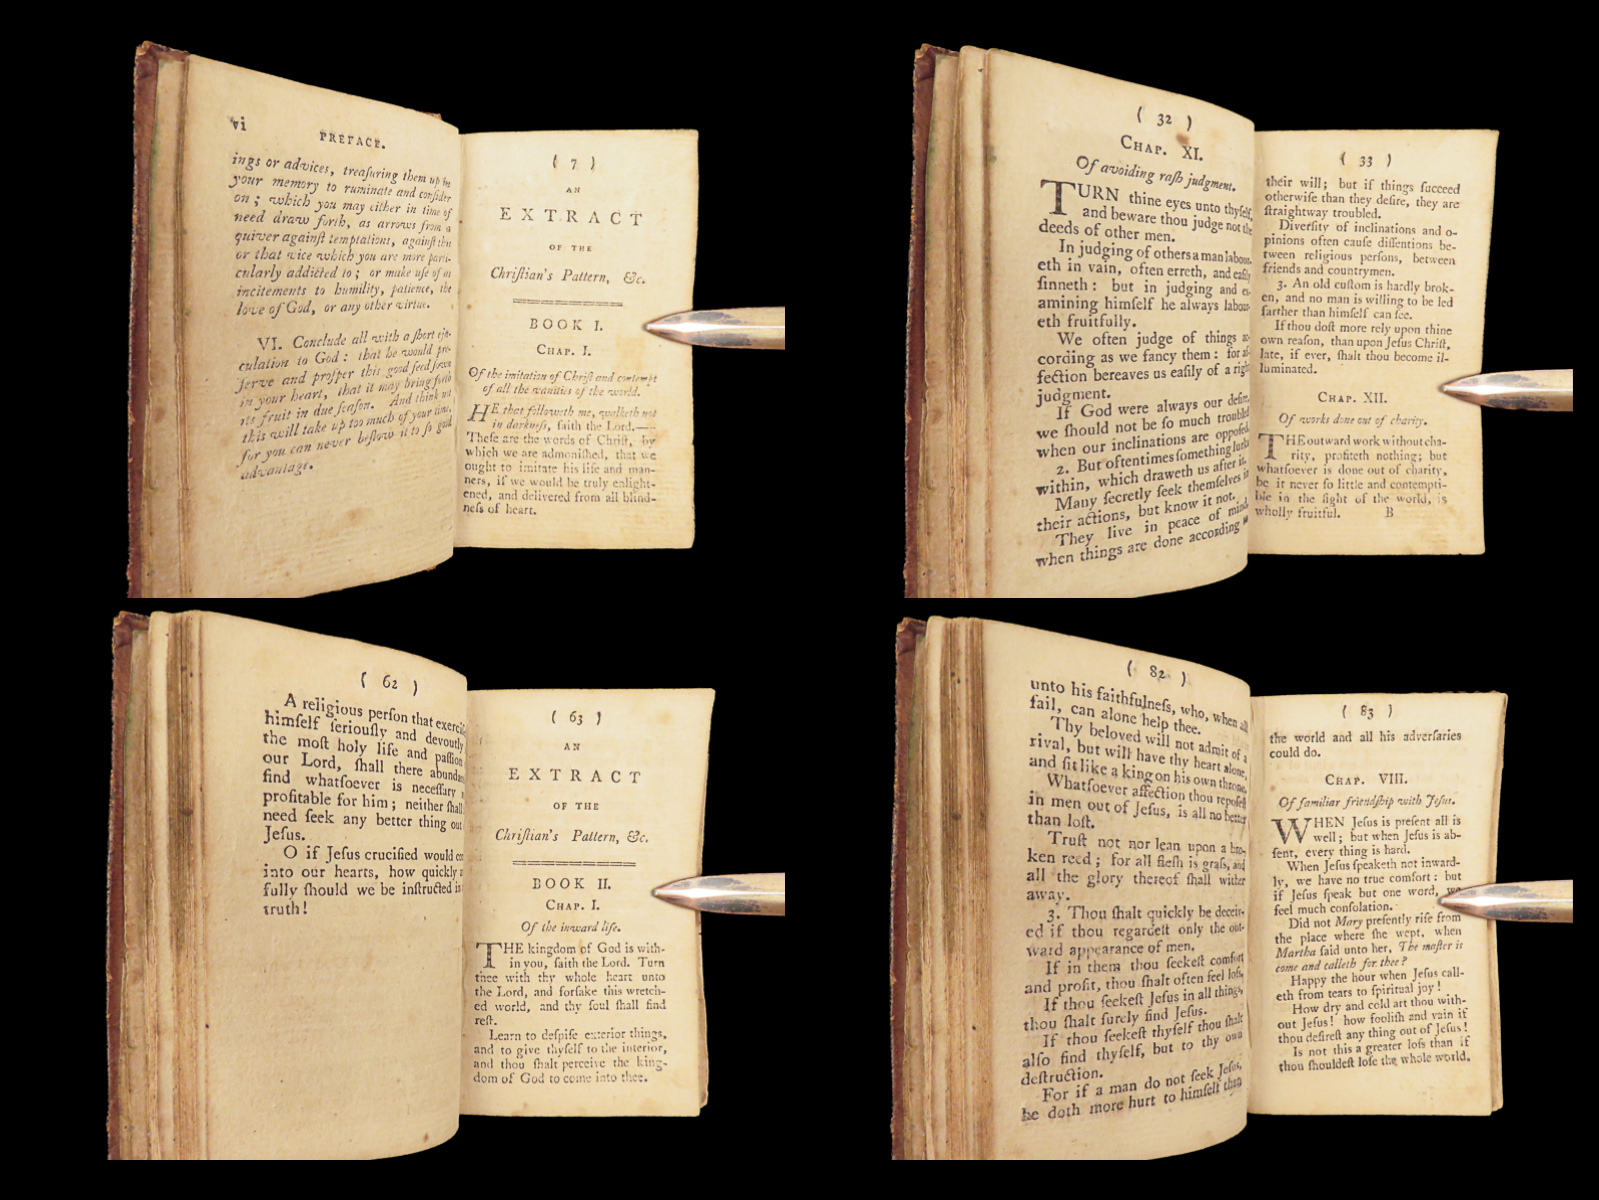 vi
PREFACE.
ings or advices, treaſuring them up in
your memory to ruminate and conſider
on; which you may either in time of
need draw forth, as arrows from a
quiver againſt temptations, againſt this
or that vice which you are more parti-
cularly addicted to; or make uſe of as
incitements to humility, patience, the
love of God, or any other virtue.
VI. Conclude all with a ſhort eja-
culation to God: that he would pre-
ſerve and proſper this good ſeed ſown
in your heart, that it may bring forth
its fruit in due ſeaſon. And think not
this will take up too much of your time,
for you can never beſtow it to ſo good
advantage.
( 7 )
AN
EXTRACT
OF THE
Chriſtian's Pattern, &c.
BOOK I.
CHAP. I.
Of the imitation of Chriſt and contempt
of all the vanities of the world.
HE that followeth me, walketh not
in darkneſs, ſaith the Lord.—
Theſe are the words of Chriſt, by
which we are admoniſhed, that we
ought to imitate his life and man-
ners, if we would be truly enlight-
ened, and delivered from all blind-
neſs of heart.
( 32 )
CHAP. XI.
Of avoiding raſh judgment.
TURN thine eyes unto thyſelf,
and beware thou judge not the
deeds of other men.
In judging of others a man labour-
eth in vain, often erreth, and eaſily
ſinneth: but in judging and ex-
amining himſelf he always labour-
eth fruitfully.
We often judge of things ac-
cording as we fancy them: for af-
fection bereaves us eaſily of a right
judgment.
If God were always our deſire,
we ſhould not be ſo much troubled
when our inclinations are oppoſed.
2. But oftentimes ſomething lurks
within, which draweth us after it.
Many ſecretly ſeek themſelves in
their actions, but know it not.
They live in peace of mind
when things are done according to
( 33 )
their will; but if things ſucceed
otherwiſe than they deſire, they are
ſtraightway troubled.
Diverſity of inclinations and o-
pinions often cauſe diſſentions be-
tween religious perſons, between
friends and countrymen.
3. An old cuſtom is hardly brok-
en, and no man is willing to be led
farther than himſelf can ſee.
If thou doſt more rely upon thine
own reaſon, than upon Jeſus Chriſt,
late, if ever, ſhalt thou become il-
luminated.
CHAP. XII.
Of works done out of charity.
THE outward work without cha-
rity, profiteth nothing; but
whatſoever is done out of charity,
be it never ſo little and contempti-
ble in the ſight of the world, is
wholly fruitful. B
( 62 )
A religious perſon that exerciſ
himſelf ſeriouſly and devoutly
the moſt holy life and paſſion
our Lord, ſhall there abundan
find whatſoever is neceſſary
profitable for him; neither ſhall
need ſeek any better thing out
Jeſus.
O if Jeſus crucified would co
into our hearts, how quickly a
fully ſhould we be inſtructed in
truth!
( 63 )
AN
EXTRACT
OF THE
Chriſtian's Pattern, &c.
BOOK II.
CHAP. I.
Of the inward life.
THE kingdom of God is with-
in you, ſaith the Lord. Turn
thee with thy whole heart unto
the Lord, and forſake this wretch-
ed world, and thy ſoul ſhall find
reſt.
Learn to deſpiſe exterior things,
and to give thyſelf to the interior,
and thou ſhalt perceive the king-
dom of God to come into thee.
( 82 )
unto his faithfulneſs, who, when all
fail, can alone help thee.
Thy beloved will not admit of a
rival, but will have thy heart alone,
and ſit like a king on his own throne.
Whatſoever affection thou repoſeſt
in men out of Jeſus, is all no better
than loſt.
Truſt not nor lean upon a bro-
ken reed; for all fleſh is graſs, and
all the glory thereof ſhall wither
away.
3. Thou ſhalt quickly be deceiv-
ed if thou regardeſt only the out-
ward appearance of men.
If in them thou ſeekeſt comfort
and profit, thou ſhalt often feel loſs.
If thou ſeekeſt Jeſus in all things,
thou ſhalt ſurely find Jeſus.
If thou ſeekeſt thyſelf thou ſhalt
alſo find thyſelf, but to thy own
deſtruction.
For if a man do not ſeek Jeſus,
he doth more hurt to himſelf than
( 83 )
the world and all his adverſaries
could do.
CHAP. VIII.
Of familiar friendſhip with Jeſus.
WHEN Jeſus is preſent all is
well; but when Jeſus is ab-
ſent, every thing is hard.
When Jeſus ſpeaketh not inward-
ly, we have no true comfort: but
if Jeſus ſpeak but one word, we
feel much conſolation.
Did not Mary preſently riſe from
the place where ſhe wept, when
Martha ſaid unto her, The maſter is
come and calleth for thee?
Happy the hour when Jeſus call-
eth from tears to ſpiritual joy!
How dry and cold art thou with-
out Jeſus! how fooliſh and vain if
thou deſireſt any thing out of Jeſus!
Is not this a greater loſs than if
thou ſhouldeſt loſe the whole world.